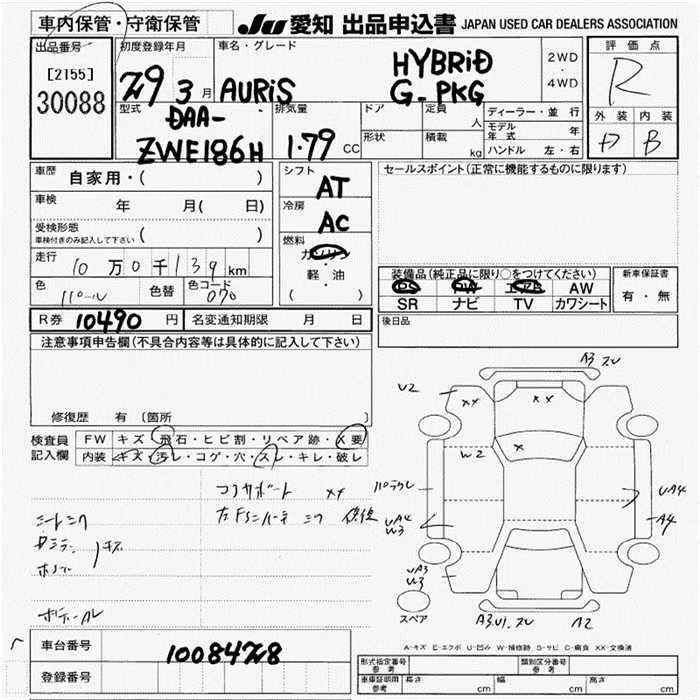 車内保管・守衛保管
JU 愛知 出品申込書 JAPAN USED CAR DEALERS ASSOCIATION
出品番号
[2155]
30088
初度登録年月
29 3 月
車名・グレード
AURiS
HYBRiD
G-PKG
2WD
・
4WD
評価点
R
外装 内装
D B
型式
DAA-
ZWE186H
排気量
1.79 CC
ドア
定員 人
形状
積載 kg
ディーラー・並行
モデル年式 年
ハンドル 左・右
車歴 自家用・( )
車検 年 月( 日)
受検形態
車検付きのみ記入して下さい ( )
走行 10 万 0 千 139 km
色 パール 色替 色コード 070
シフト
AT
冷房
AC
燃料
ガソリン
・
軽・油
( )
セールスポイント(正常に機能するものに限ります)
装備品(純正品に限り○をつけてください)
PS PW エアB AW
SR ナビ TV カワシート
新車保証書
有・無
後日品
R券 10490 円 名変通知期限 月 日
注意事項申告欄(不具合内容等は具体的に記入して下さい)
修復歴 有 〔箇所 〕
検査員
記入欄
FW キズ・飛石・ヒビ割・リペア跡・X要
内装 キズ・汚レ・コゲ・穴・スレ・キレ・破レ
コアサポート XX
A3 スレ
U2
XX
XX
X
W2
UA4
W3
UA4
A4
UA3
U3
スペア
A3.U1.スレ
A2
A-キズ E-エクボ U-凹み W-補修跡 S-サビ C-腐食 XX-交換済
車台番号 10084728
登録番号
形式指定番号
参考
類別区分番号
参考
車庫証明用
参考
長さ cm 幅 cm 高さ cm